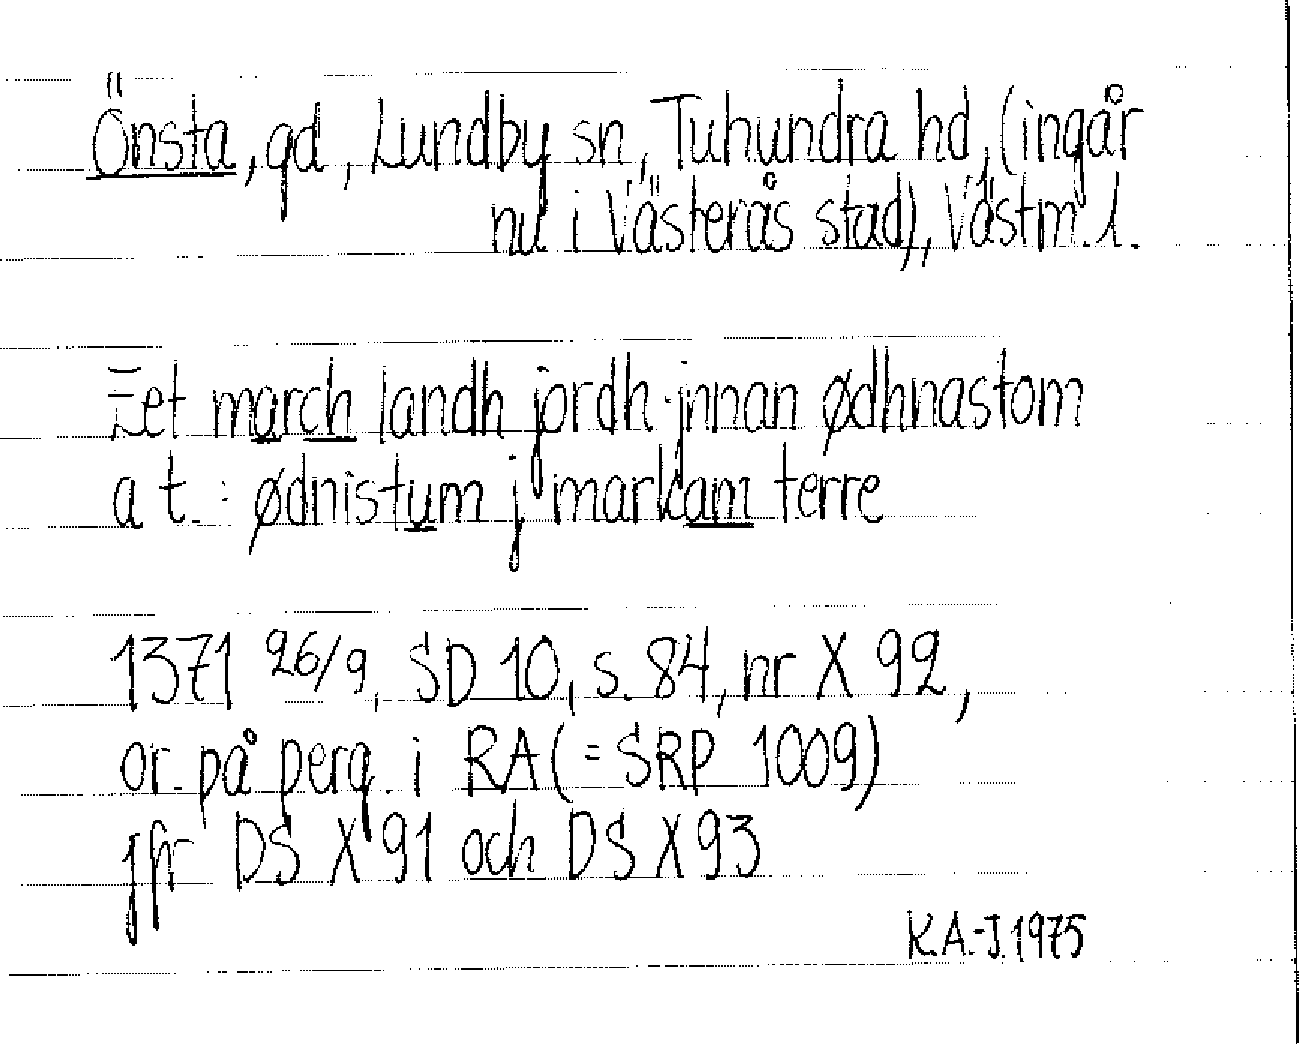 Önsta, gd, Lundby sn, Tuhundra hd, (ingår
nu i Västerås stad), Västm. l.
Eet march landh jordh jnnan ødhnastom
a t. : ødnistum j markam terre
1371 26/9, SD 10, s. 84, nr X 92,
or. på perg. i RA (= SRP 1009)
jfr DS X 91 och DS X 93
K.A.-J. 1975